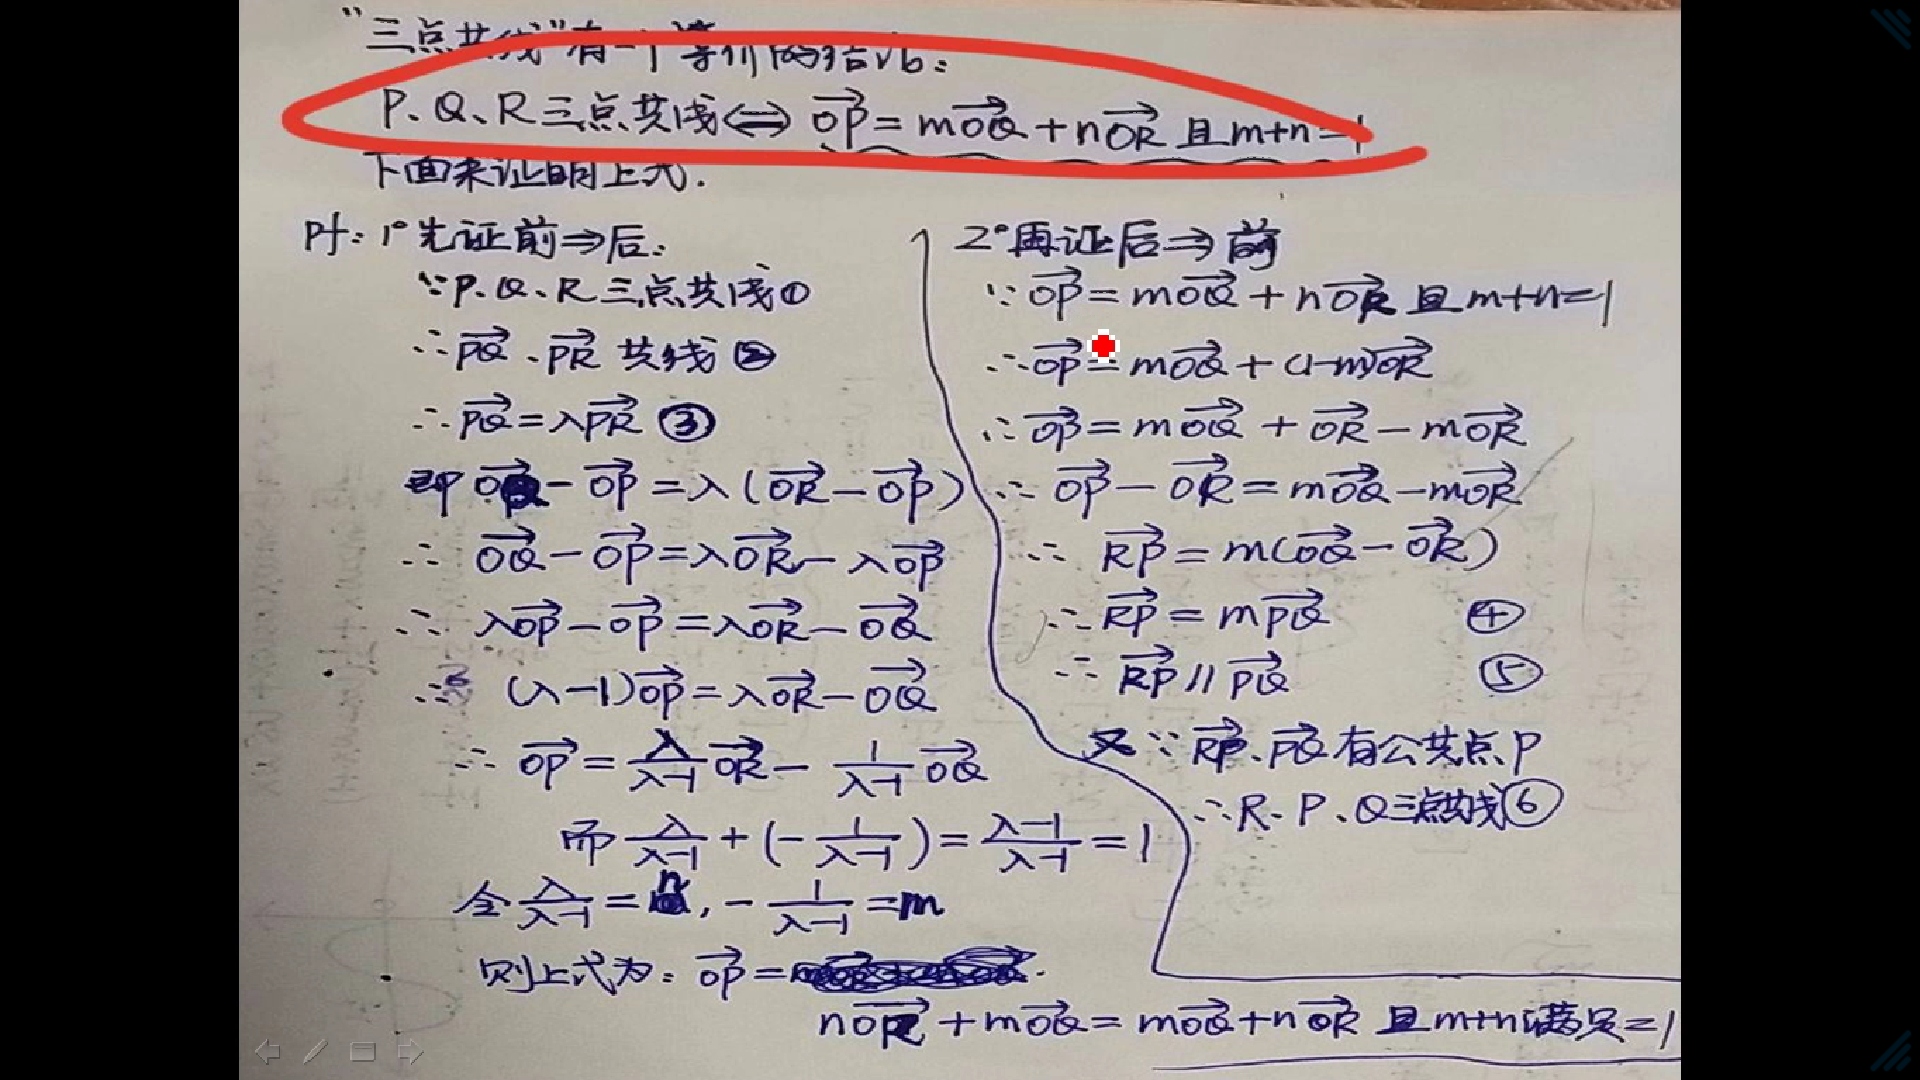 "三点共线"有一个等价的结论:
P、Q、R三点共线⟺ OP→=mOQ→+nOR→ 且m+n=1
下面来证明上式.
叶: 1°先证前⇒后:
∵P、Q、R三点共线①
∴PQ→、PR→ 共线②
∴PQ→=λPR→ ③
即 OQ→-OP→=λ(OR→-OP→)
∴ OQ→-OP→=λOR→-λOP→
∴ λOP→-OP→=λOR→-OQ→
∴ (λ-1)OP→=λOR→-OQ→
∴ OP→=λ/(λ-1) OR→- 1/(λ-1) OQ→
而 λ/(λ-1)+(-1/(λ-1))=(λ-1)/(λ-1)=1
令 λ/(λ-1)=n, -1/(λ-1)=m
则上式为: OP→=
nOR→+mOQ→=mOQ→+nOR→ 且m+n满足=1
2°再证后⇒前
∵OP→=mOQ→+nOR→ 且m+n=1
∴OP→=mOQ→+(1-m)OR→
∴OP→=mOQ→+OR→-mOR→
∴OP→-OR→=mOQ→-mOR→
∴ RP→=m(OQ→-OR→)
∴RP→=mPQ→ ④
∴RP→∥PQ→ ⑤
又∵RP→、PQ→有公共点P
∴R、P、Q三点共线⑥